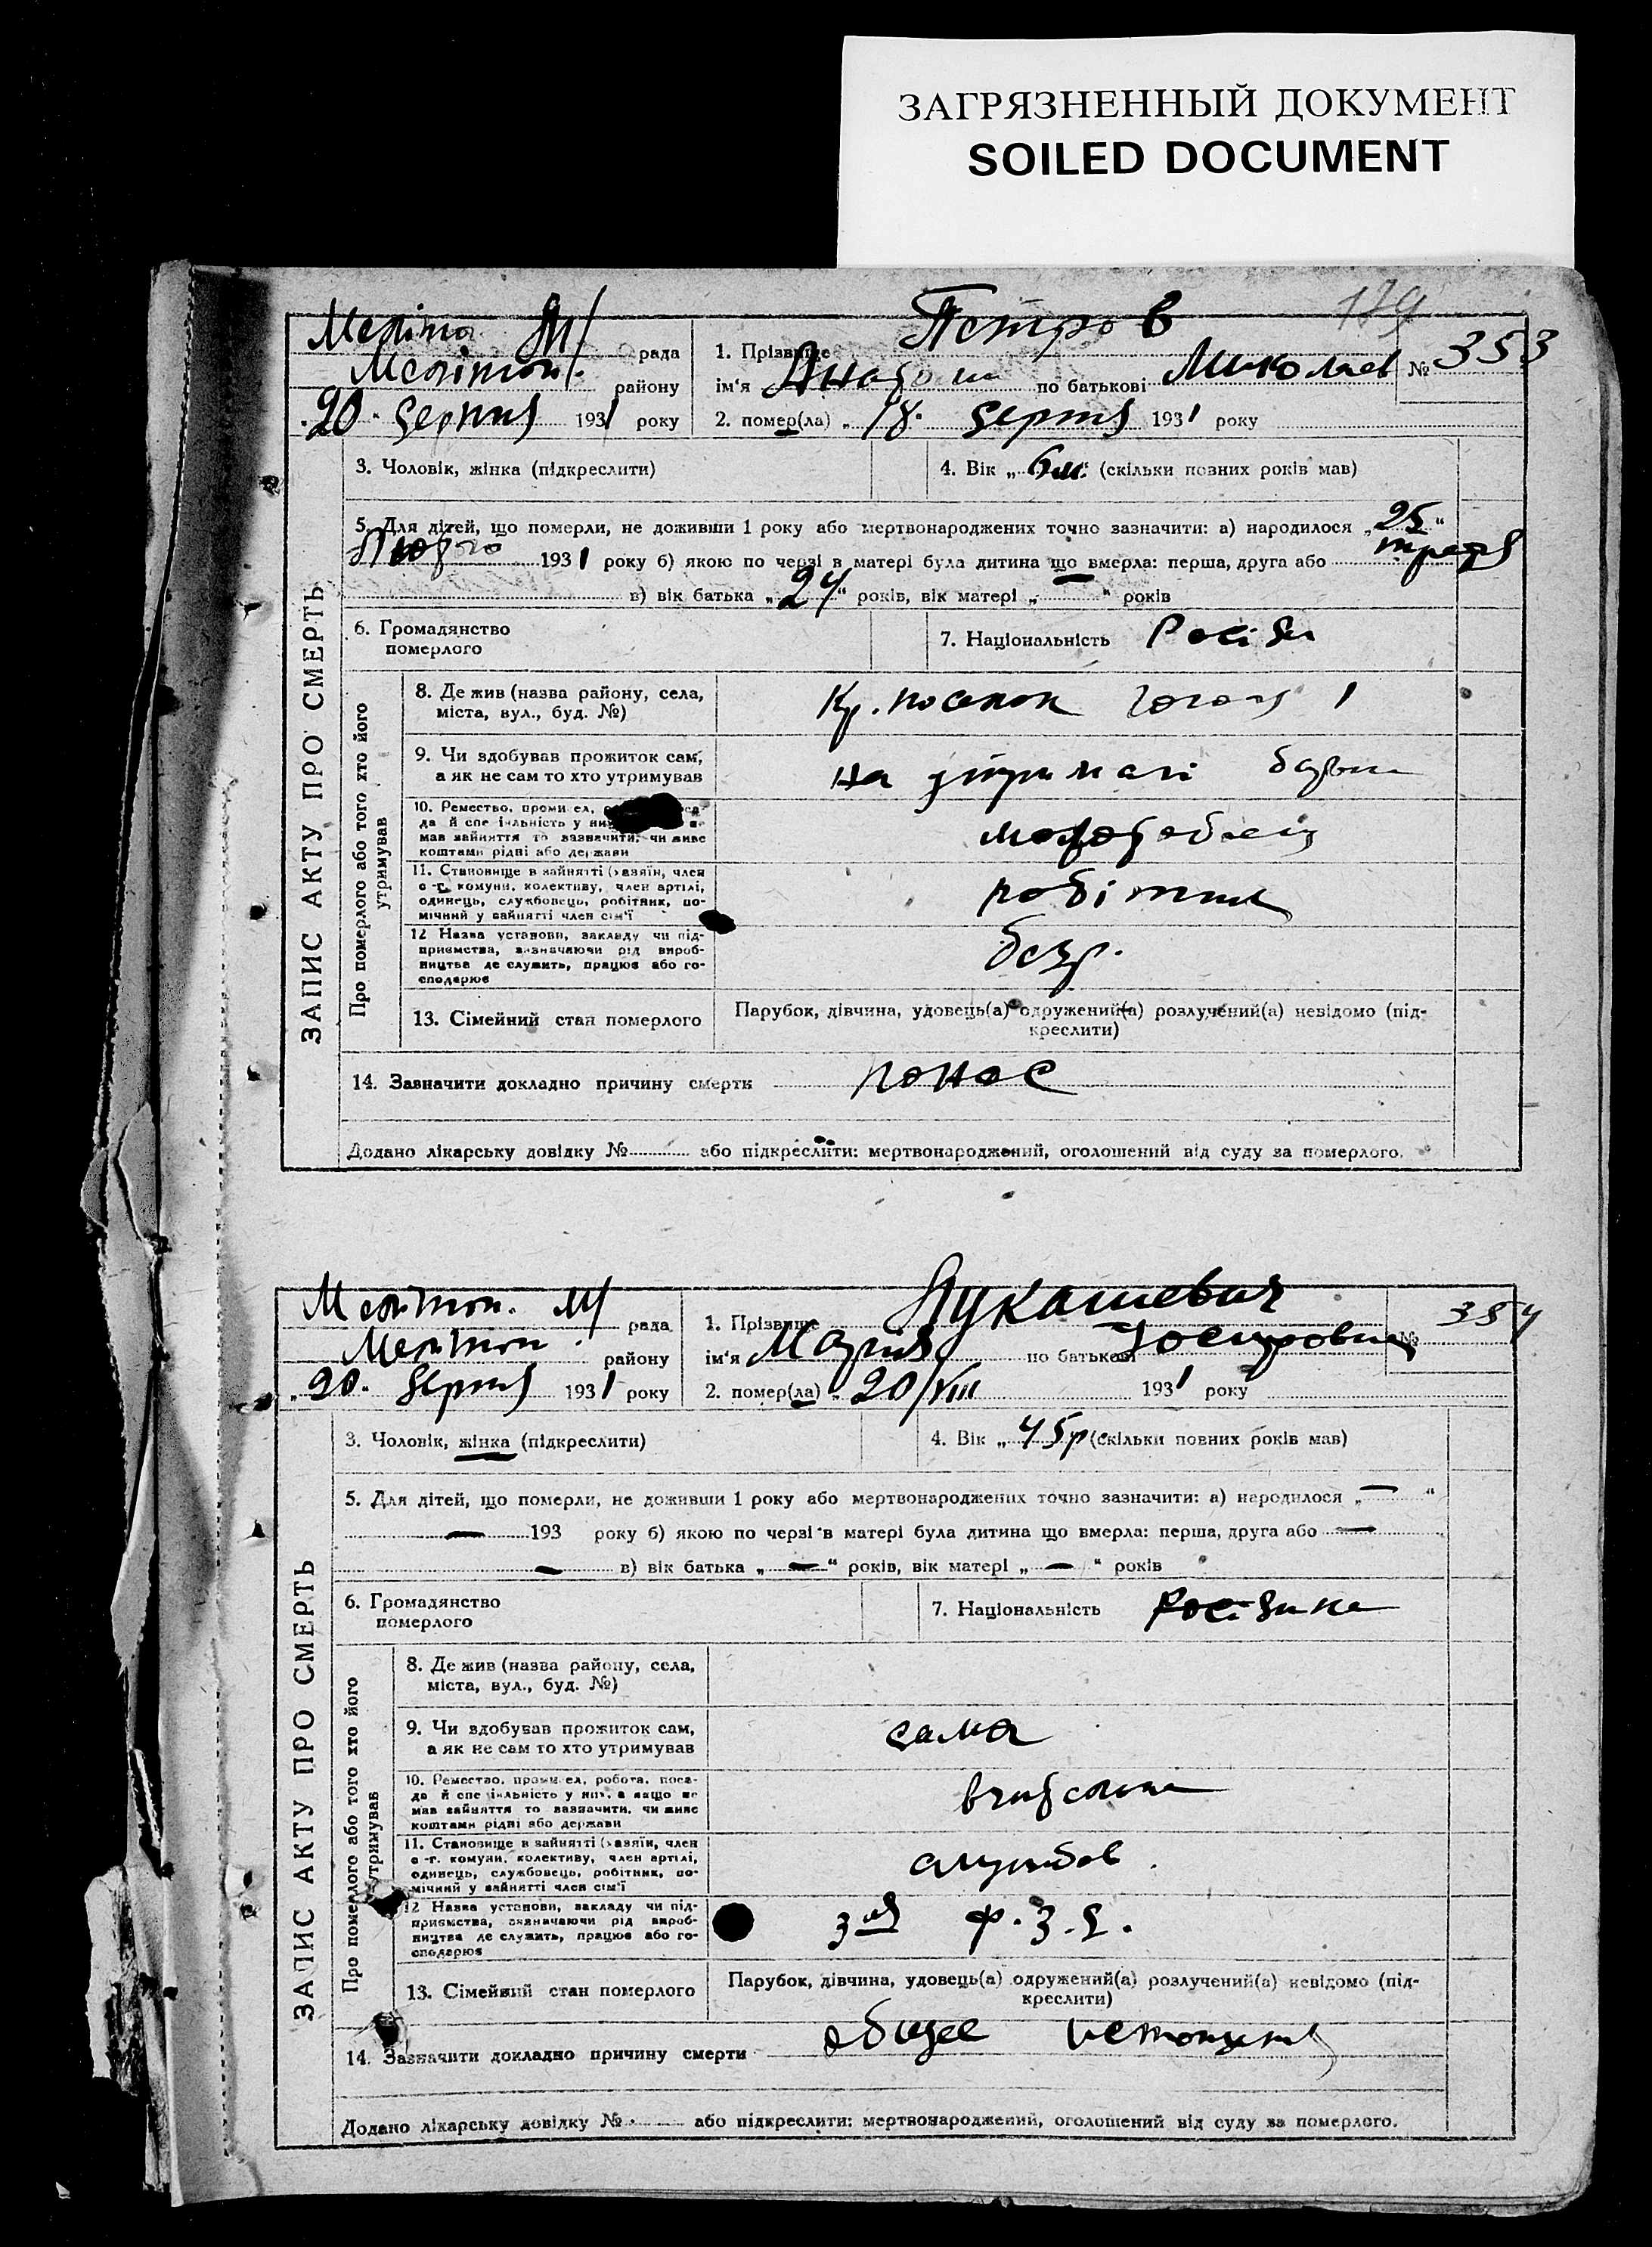 ЗАГРЯЗНЕННЫЙ ДОКУМЕНТ
SOILED DOCUMENT
179
ЗАПИС АКТУ ПРО СМЕРТЬ
рада
району
20 серпня 1931 року
1. Прізвище Петров
№ 353
ім'я по батькові Миколаев
2. помер(ла) „18. серпня 1931 року
3. Чоловік, жінка (підкреслити)
4. Вік „6 м." (скільки повних років мав)
5. Для дітей, що померли, не доживши 1 року або мертвонароджених точно зазначити: а) народилося „25"
Лютого 1931 року б) якою по черзі в матері була дитина що вмерла: перша, друга або третя
в) вік батька „24" років, вік матері „—" років
6. Громадянство
померлого
7. Національність
Про померлого або того хто його
утримував
8. Де жив (назва району, села,
міста, вул., буд. №)
Кр. поселок Гоголя 1
9. Чи здобував прожиток сам,
а як не сам то хто утримував
на утримані
10. Ремество, промисел,
мав зайняття то зазначити, чи живе
коштами рідні або держави
11. Становище в зайнятті (хазяїн, член
с.-г. комуни, колективу, член артілі,
одинець, службовець, робітник, по-
мічний у зайнятті член сім'ї
робітник
12 Назва установи, закладу чи під-
приємства, зазначаючи рід вироб-
ництва де служить, працює або го-
сподарює
безр.
13. Сімейний стан померлого
Парубок, дівчина, удовець(а) одружений(а) розлучений(а) невідомо (під-
креслити)
14. Зазначити докладно причину смерти понос
Додано лікарську довідку № або підкреслити: мертвонароджений, оголошений від суду за померлого.
ЗАПИС АКТУ ПРО СМЕРТЬ
рада
району
„20. серпня 1931 року
1. Прізвище Лукашевич
№ 354
ім'я Мария по батькові Иосифовна
2. помер(ла) „20/VIII 1931 року
3. Чоловік, жінка (підкреслити)
4. Вік „45 р (скільки повних років мав)
5. Для дітей, що померли, не доживши 1 року або мертвонароджених точно зазначити: а) народилося „—"
— 193 року б) якою по черзі в матері була дитина що вмерла: перша, друга або —
— в) вік батька „—" років, вік матері „—" років
6. Громадянство
померлого
7. Національність Росіянка
Про померлого або того хто його
утримував
8. Де жив (назва району, села,
міста, вул., буд. №)
9. Чи здобував прожиток сам,
а як не сам то хто утримував
сама
10. Ремество, промисел, робота, поса-
да й спеціяльність у них, а якщо не
мав зайняття то зазначити, чи живе
коштами рідні або держави
11. Становище в зайнятті (хазяїн, член
с.-г. комуни, колективу, член артілі,
одинець, службовець, робітник, по-
мічний у зайнятті член сім'ї
службов.
12 Назва установи, закладу чи під-
приємства, зазначаючи рід вироб-
ництва де служить, працює або го-
сподарює
13. Сімейний стан померлого
Парубок, дівчина, удовець(а) одружений(а) розлучений(а) невідомо (під-
креслити)
14. Зазначити докладно причину смерти общее истощение
Додано лікарську довідку № або підкреслити: мертвонароджений, оголошений від суду за померлого.